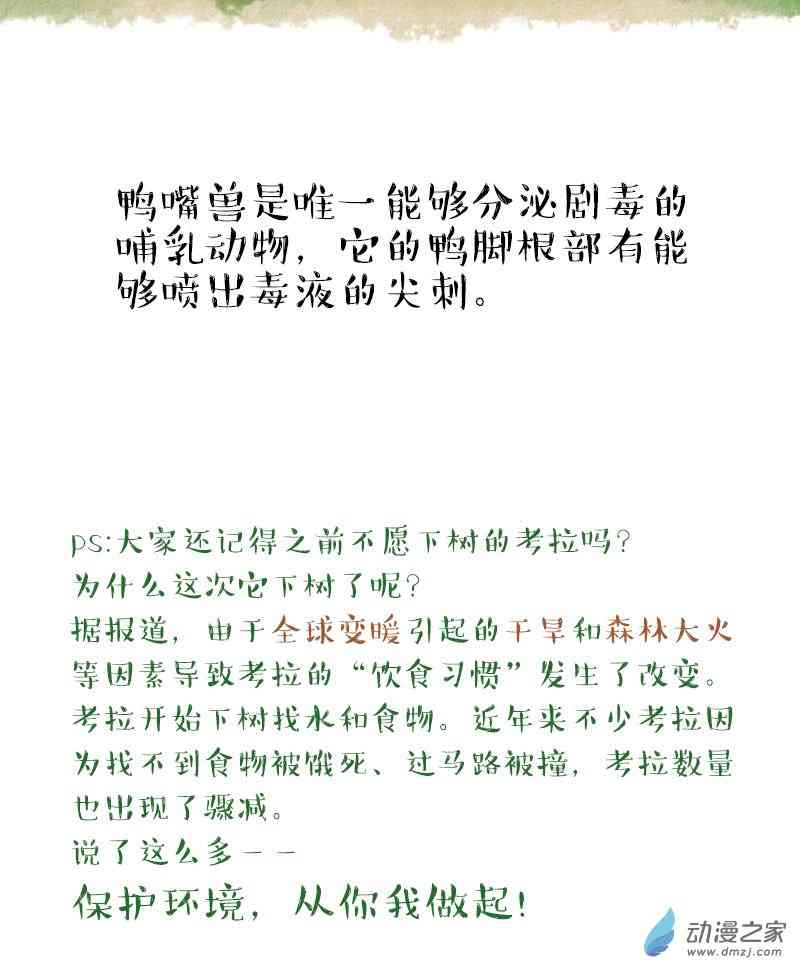 鸭嘴兽是唯一能够分泌剧毒的
哺乳动物，它的鸭脚根部有能
够喷出毒液的尖刺。
ps:大家还记得之前不愿下树的考拉吗？
为什么这次它下树了呢？
据报道，由于全球变暖引起的干旱和森林大火
等因素导致考拉的“饮食习惯”发生了改变。
考拉开始下树找水和食物。近年来不少考拉因
为找不到食物被饿死、过马路被撞，考拉数量
也出现了骤减。
说了这么多－－
保护环境，从你我做起！
动漫之家
www.dmzj.com